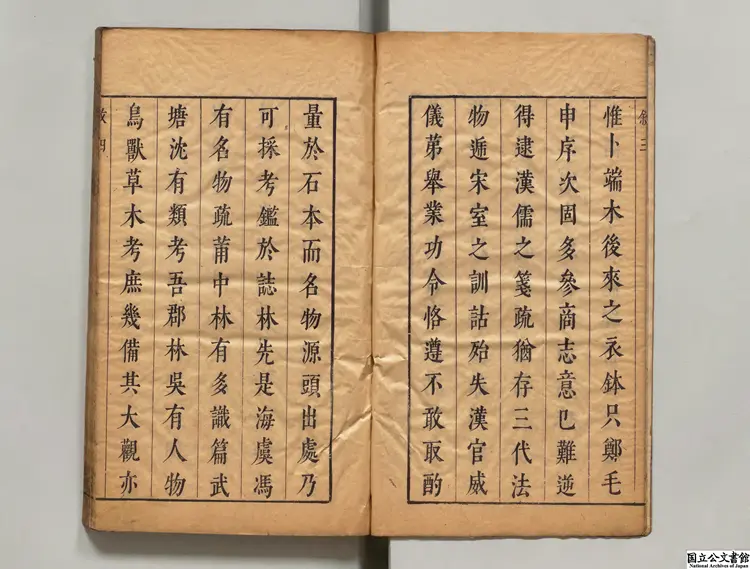 敘三
惟卜端木後來之衣鉢只鄭毛
申序次固多參商志意已難逆
得逮漢儒之箋疏猶存三代法
物遞宋室之訓詁殆失漢官威
儀第舉業功令恪遵不敢取酌
量於石本而名物源頭出處乃
可採考鑑於誌林先是海虞馮
有名物疏莆中林有多識篇武
塘沈有類考吾郡林吳有人物
鳥獸草木考庶幾備其大觀亦
敘四
国立公文書館
National Archives of Japan